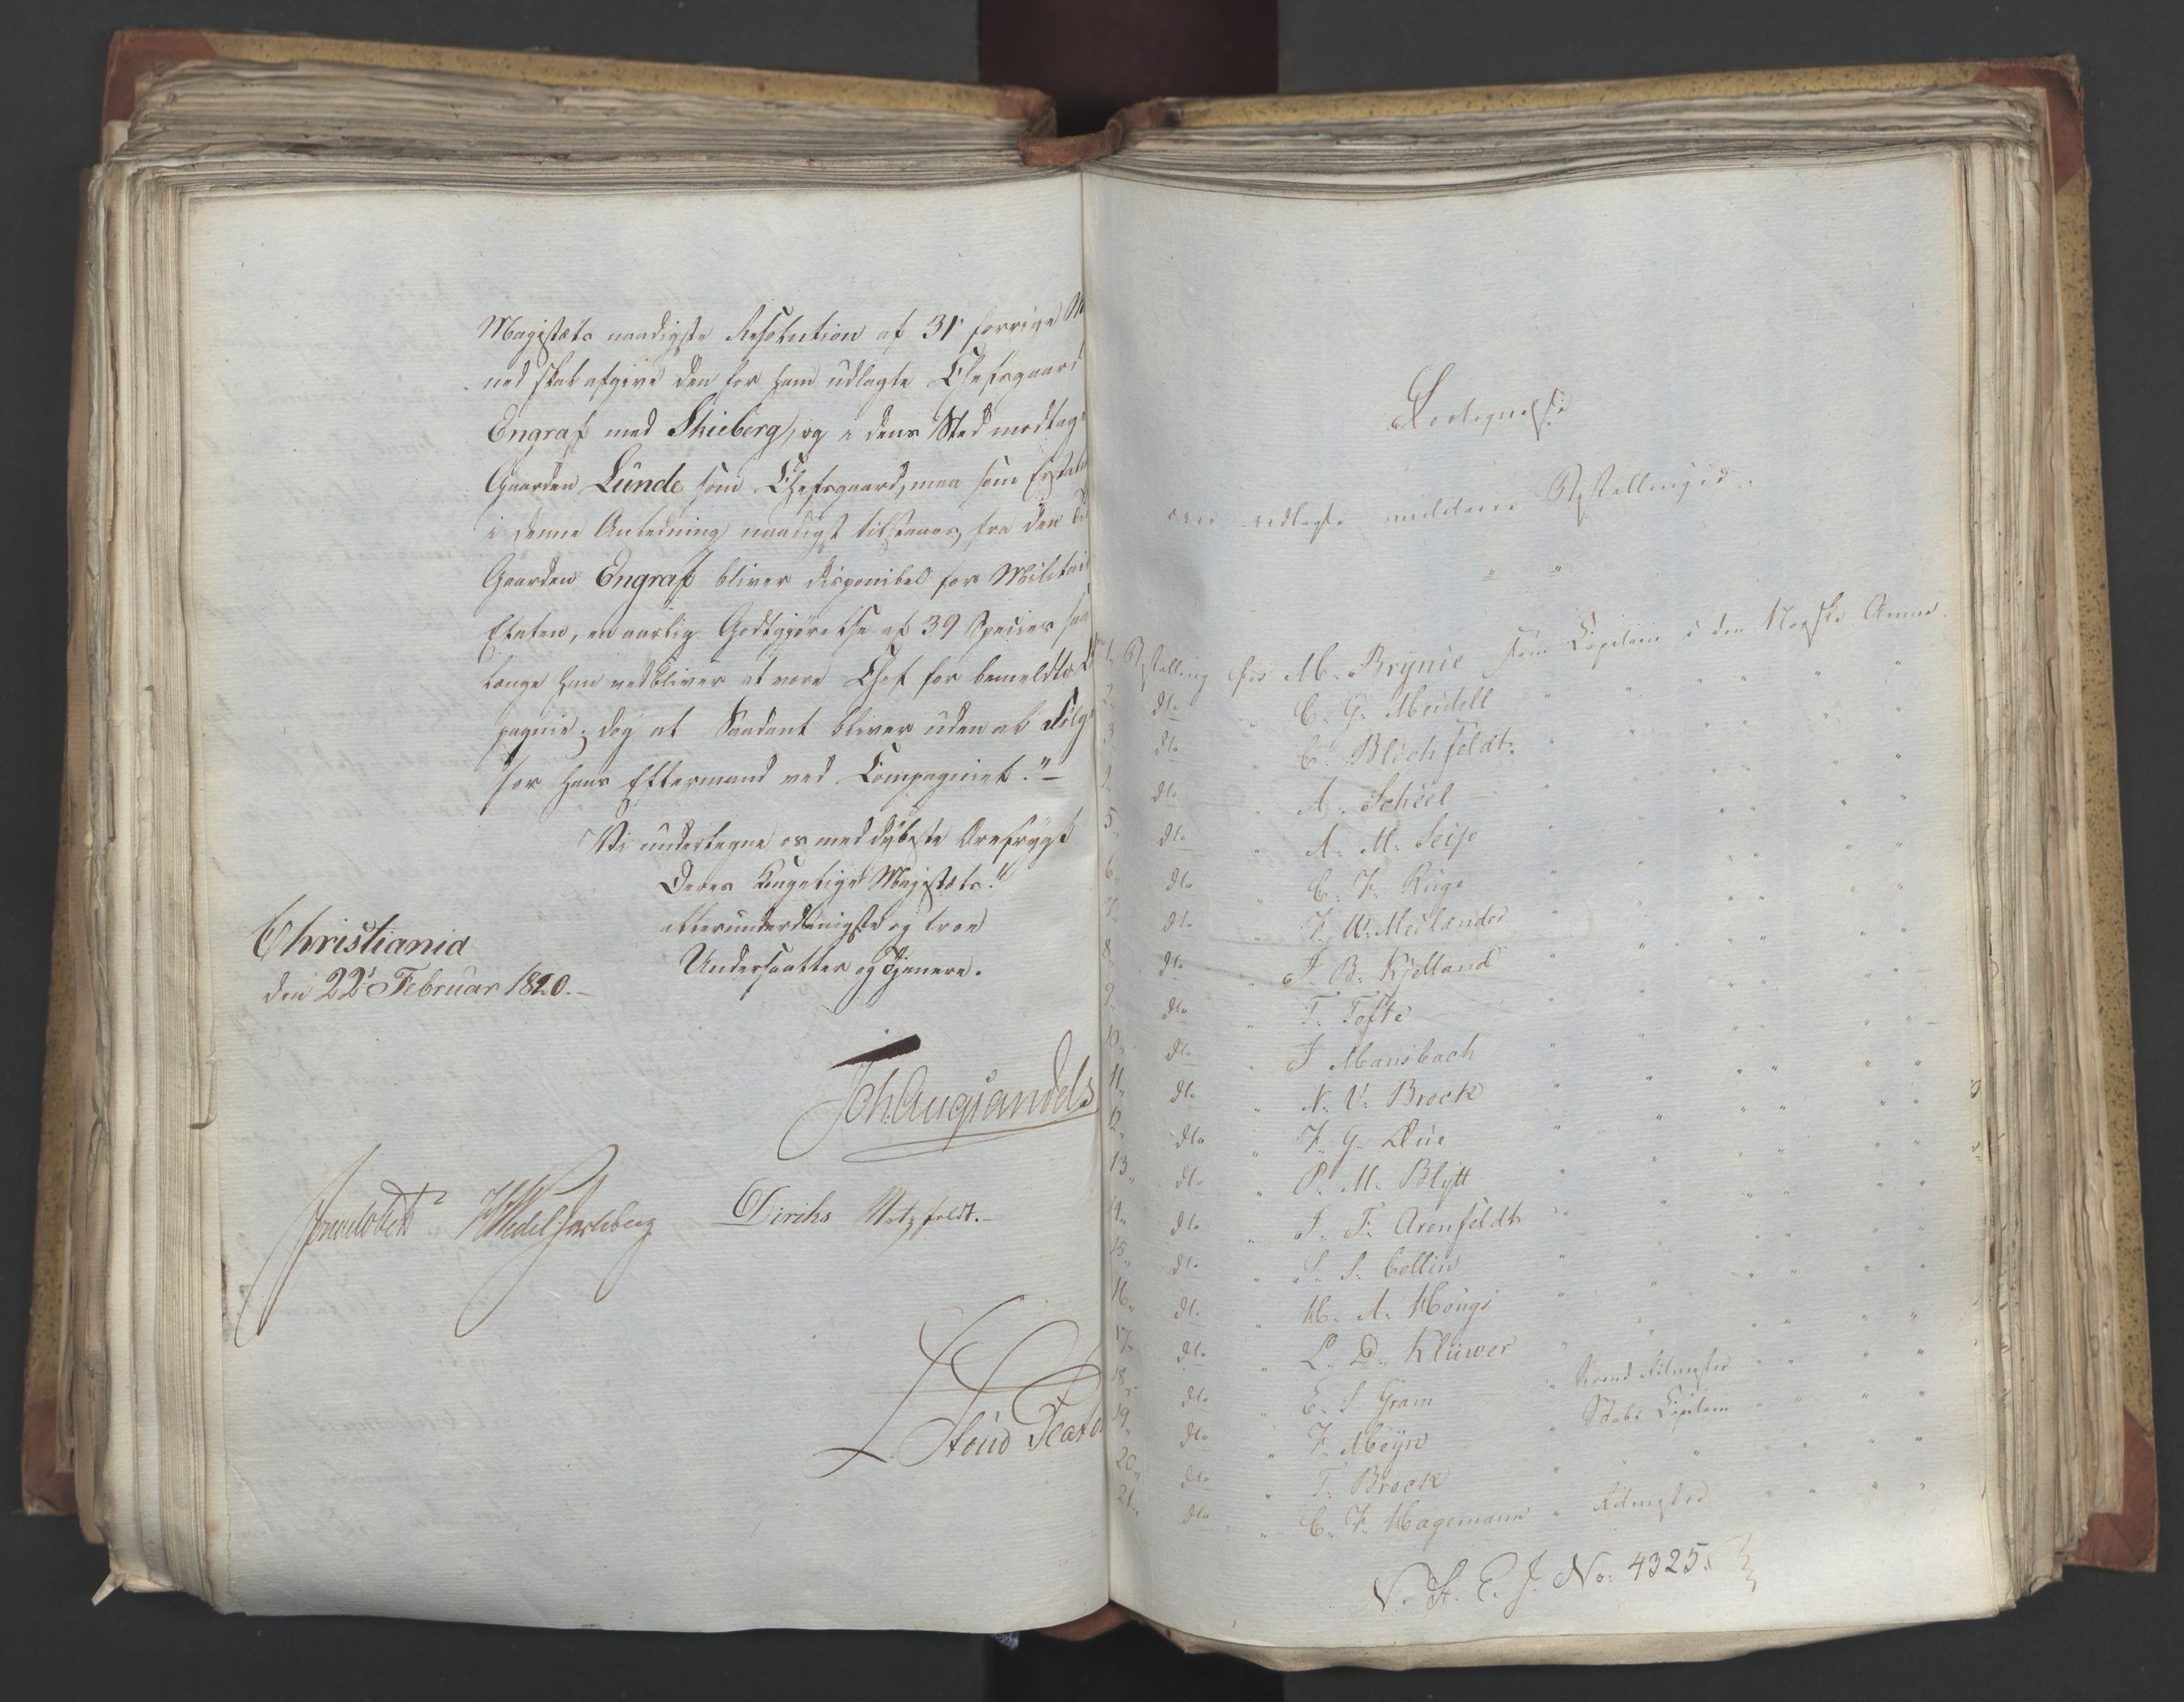 Majestæts naadigste Resolution af 31' forrige M
ned skal afgive den for ham udlagte Chefsgaard
Engraf med Skieberg, og i dens Sted modtage
Gaarden Lunde som Chefsgaard, maa som
i denne Anledning naadigst tilstaaes, fra den
Gaarden Engraf bliver disponibel for Militair
Etaten, en aarlig Godtgjørelse af 39 Species saa
længe han vedbliver at være Chef for bemeldte
pagnie; dog at Saadant bliver uden al Følge
for hans Eftermand ved Compagniet."
Vi undertegne os med dybeste Ærefrygt
Deres Kongelige Majestæts
allerunderdanigste og troe
Undersaatter og Tjenere.
Christiania
den 22' Februar 1820.
Joh. Aug. Sandels
Sommerhielm HWedel Jarlsberg Diriks Motzfeldt.
Fortegnelse
over vedlagte militaire Bestallinger.
1. Bestalling for M. Brynie som Capitain i den Norske Armee.
2. dto " C. G. Meidell " " " " "
3. dto " C. Blichfeldt " " " " "
4. dto " A. Scheel " " " " "
5. dto " A. M. Seip " " " " "
6. dto " C. F. Ruge " " " " "
7. dto " F. W. Meilænder " " " " "
8. dto " J. B. Kjelland " " " " "
9. dto " T. Tofte " " " " "
10. dto " J. Mansbach " " " " "
11. dto " N. V. Brock " " " " "
12. dto " F. G. Due " " " " "
13. dto " P. M. Blytt " " " " "
14. dto " J. F. Arenfeldt " " " " "
15. dto " S. S. Collin " " " " "
16. dto " H. A. Hougs " " " " "
17. dto " L. D. Klüwer " " " " "
18. dto " E. S. Gram " Second Ritmester " " " "
19. dto " F. Meyn " Stabs Capitain " " " "
20. dto " T. Brock " " " " " "
21. dto " C. F. Hagemann " Ritmester " " " "
N. St. E. J. No: 4325.